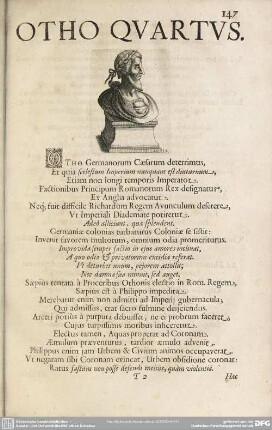 147
OTHO QVARTVS.
OTHO Germanorum Cæsarum deterrimus,
Et quia scelestum Imperium nunquam est diuturnum,
Etiam non longi temporis Imperator.
Factionibus Principum Romanorum Rex designatur,
Ex Anglia advocatur.
Neq; fuit difficile Richardum Regem Avunculum deserere,
Vt Imperiali Diademate potiretur.
Adeò alliciunt, quæ splendent.
Germaniæ colonias turbaturus Coloniæ se sistit:
Invenit favorem multorum, omnium odia promeriturus.
Improvida semper factio in eius amores inclinat,
A quo odia & privationem excidia referat.
Vt deturbet unum, pejorem attollit;
Nec damna sua minuit, sed auget.
Sæpius tentata à Proceribus Othonis electio in Rom. Regem,
Sæpius est à Philippo impedita.
Merebatur enim non admitti ad Imperij gubernacula,
Qui admissus, erat sacro fulmine dejiciendus.
Arceri potiùs à purpura debuisset, ne ei probrum faceret,
Cujus turpissimis moribus inhæreret.
Electus tamen, Aquas properat ad Coronam.
Æmulum præventurus, tardior æmulo advenit.
Philippus enim jam Urbem & Civium animos occupaverat,
Vt negatam sibi Coronam extingat, Urbem obsidione coronat:
Ratus fastigia non posse defendi melius, quàm violentiâ.
T 2
Hac